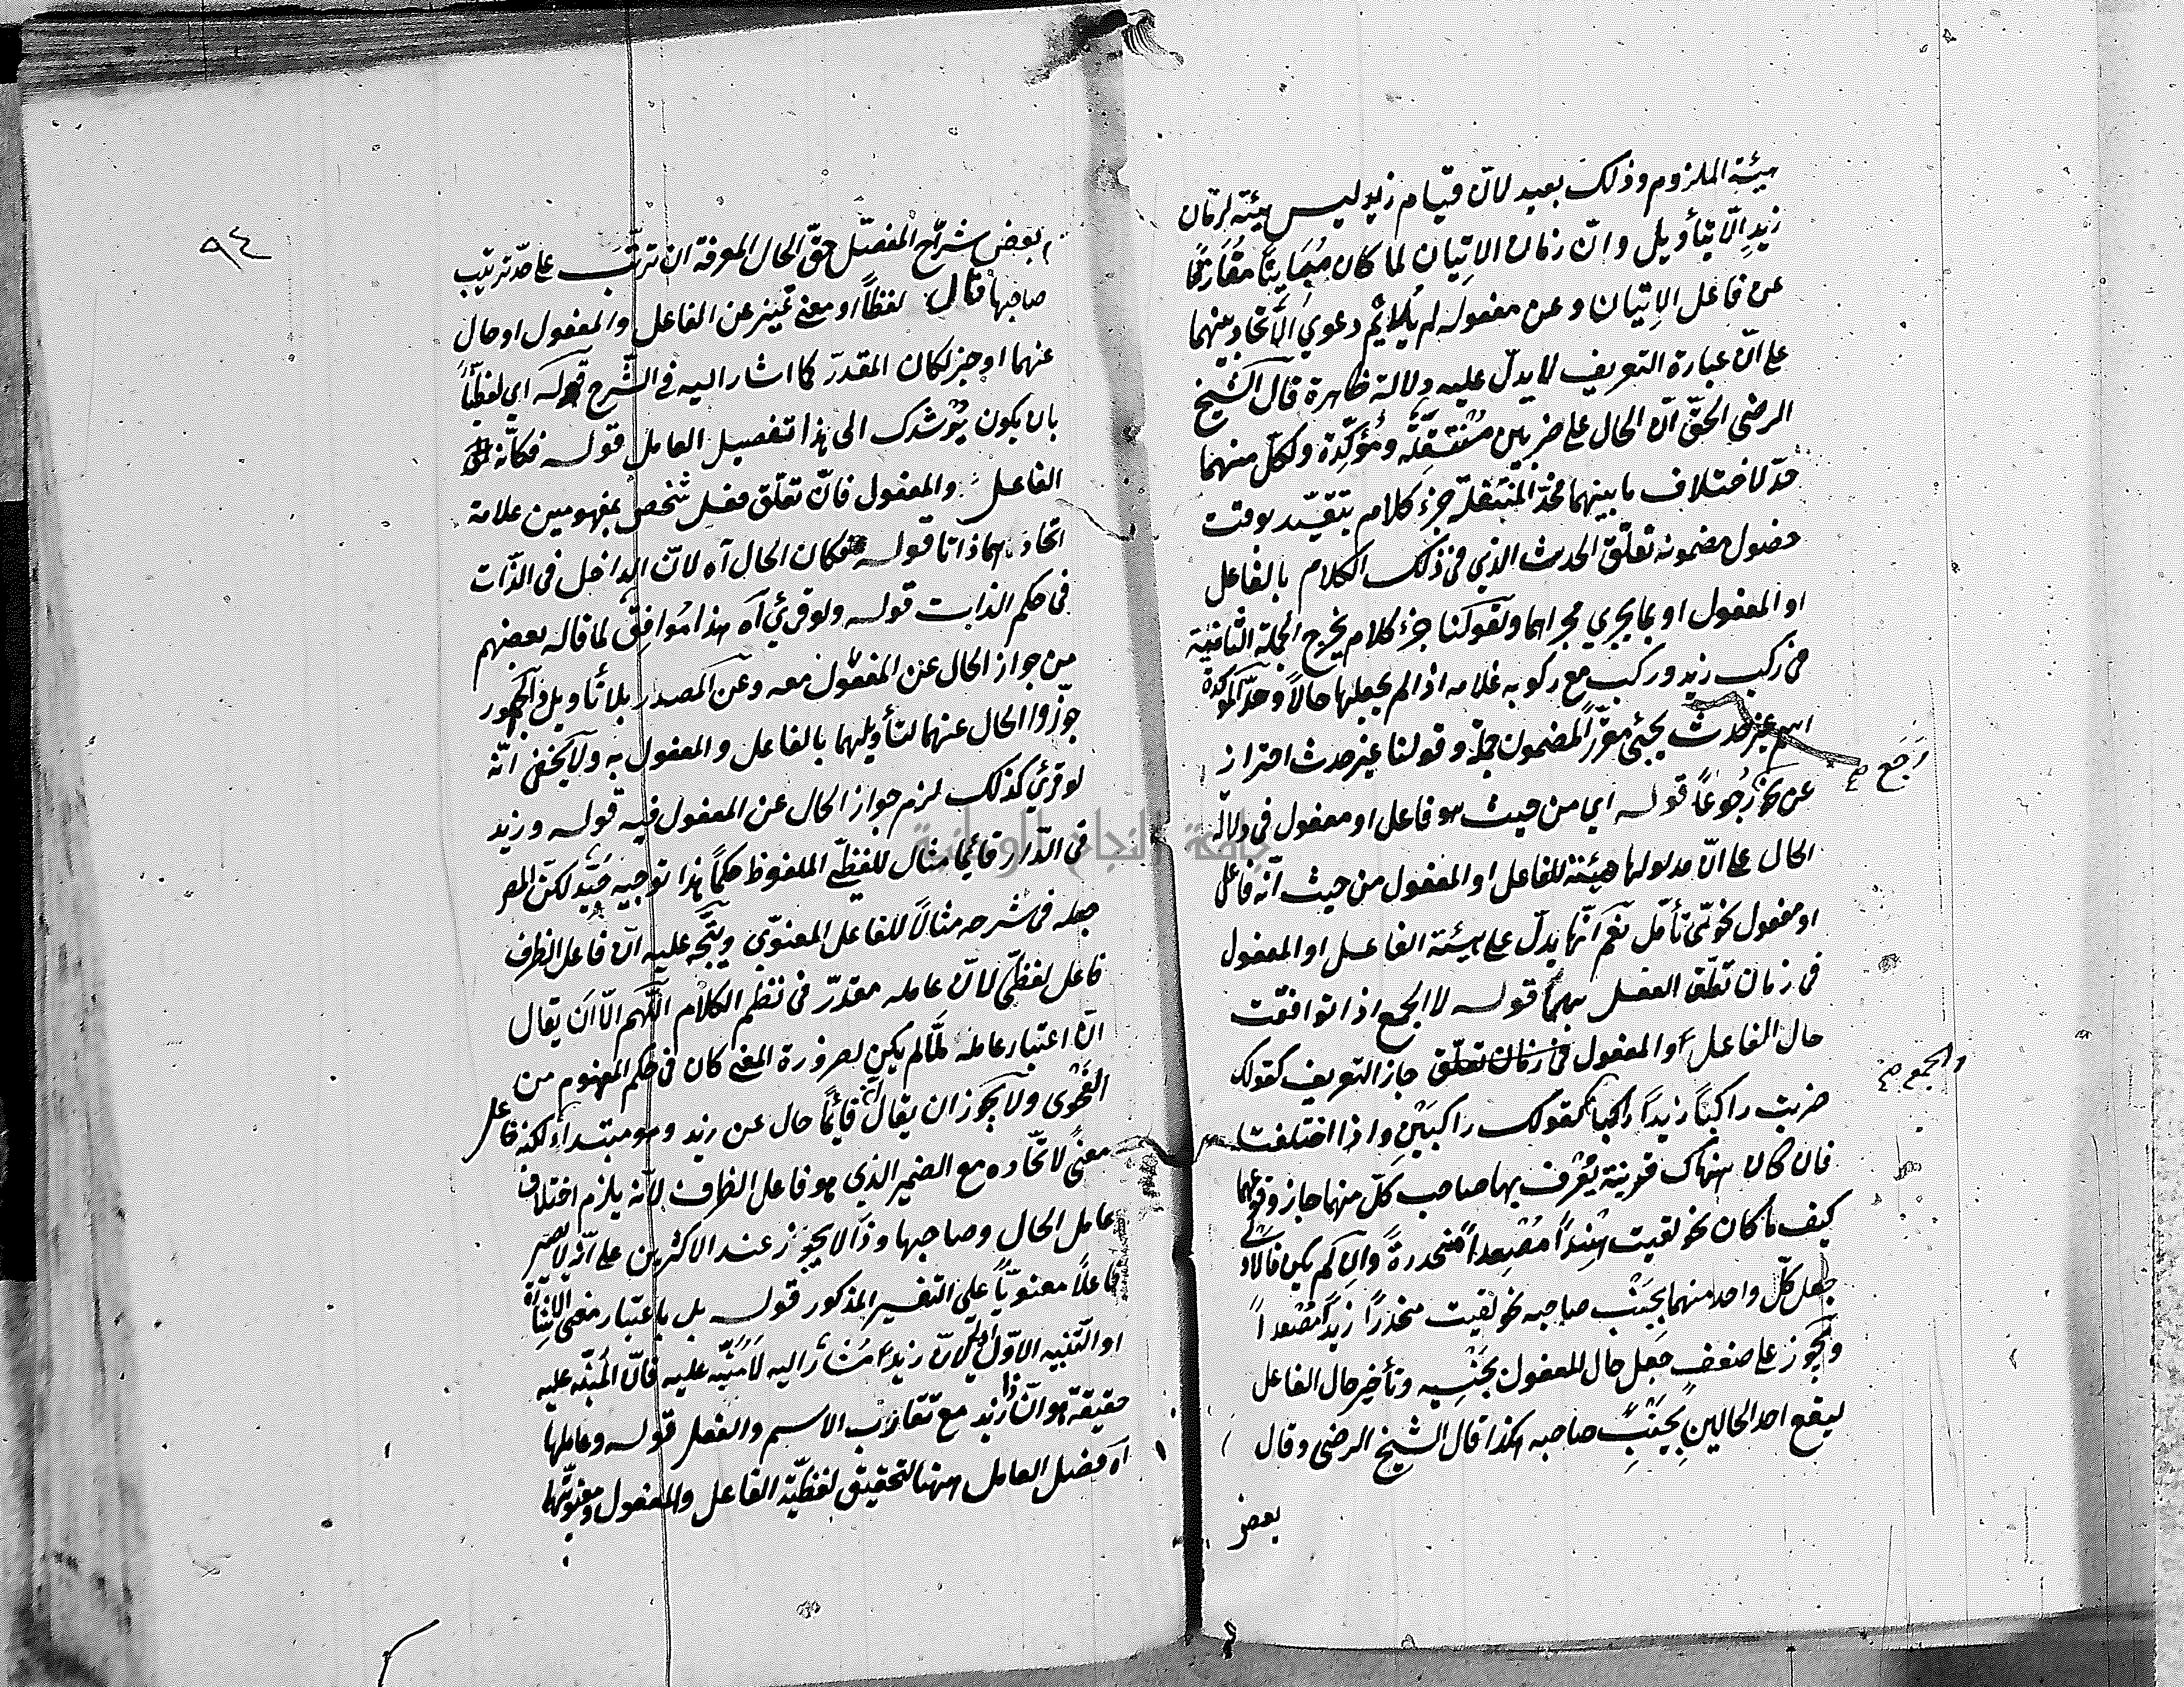 هيئة الملزوم وذلك بعيد لانّ قيام زيد ليس هيئة لزمان
زيدٍ الّا بتأويل وانّ زمان الاتيان لما كان مُبَايِنًا مفارقًا
عن فاعل الاِتيان وعن مفعوله لم يُلائم دعوي الاتّحاد بينهما
على انّ عبارة التعريف لا يدلّ عليه دلالة ظاهرة قال الشيخ
الرضي الحقّ انّ الحال على ضربين مُنْتَقِلَة ومُؤَكِّدَة ولكلّ منهما
حدّ لاختلاف ما بينهما فحدّ المنتقلة جزء كلام يتقيّد بوقت
حصول مضمونه تعلّق الحدث الذي في ذلك الكلام بالفاعل
او المفعول او بما يجري مجراهما وبقولنا جزء كلام يخرج الجملة الثانية
في ركب زيد وركب مع ركوبه غلامه اذا لم يجعلها حالاً وحدّ المؤكدة
اسم غير حدث يجيئ مقرّرًا لمضمون جملة وقولنا غير حدث احتراز
عن نحو رُجُوعًا قوله اي من حيث هو فاعل او مفعول في دلالة
رَجَع صح
الحال على انّ مدلولها هيئة للفاعل او المفعول من حيث انّه فاعل
او مفعول خفيّ تأمّل نعم انّما يدلّ على هيئة الفاعل او المفعول
في زمان تعلّق الفعل بهما قوله لا الجمع اذا توافقت
حال الفاعل او المفعول في زمان تعلّق جاز التعريف كقولك
والجمع صح
ضربت راكبًا زيدًا راكبًا كقولك راكبَيْنِ واذا اختلفت
فان كان هناك قرينة يُعْرف بها صاحب كلّ منهما جاز وقوعهما
كيف ما كان نحو لقيت هِنْدًا مُصْعِدًا مُنحدرةً وان لم يكن فالاولى
جعل كلّ واحد منهما بجَنْب صاحبه نحو لقيت منحدرًا زيدًا مُصْعدًا
ويجوز على ضعفٍ جَعل حال المفعول بجَنْبِه وتأخير حال الفاعل
ليقع احد الحالين بِجَنْبِ صاحبه هكذا قال الشيخ الرضي وقال
بعض
٩٤
بعض شرّاح المفصّل حقّ الحال المعرفة ان ترتّب على حدّ ترتيب
صاحبها قال لفظًا او معنى تمييز عن الفاعل والمفعول او حال
عنهما او خبر لكان المقدّر كما اشار اليه في الشرح قوله اي لفظيًّا
بان يكون يُرْشدك الى هذا تفصيل العامل قوله فكأنّه
الفاعل والمفعول فانّ تعلّق فعل شخص بمفهومين علامة
اتّحادهما ذاتا قوله فكان الحال آه لانّ الداخل في الذّات
في حكم الذات قوله ولو قرئ آه هذا مُوافِق لما قاله بعضهم
من جواز الحال عن المفعول معه وعن المصدر بلا تأويل والجمهور
جوّزوا الحال عنهما لتأويلهما بالفاعل والمفعول به ولا يخفى انّه
لو قرئ كذلك لزم جواز الحال عن المفعول فيه قوله وزيد
في الدّار قائمًا مثال للفظيّ الملفوظ حكمًا هذا توجيه جَيّد لكنّ المصر
جعله في شرحه مثالاً للفاعل المعنويّ ويتّجه عليه انّ فاعل الظرف
فاعل لفظيّ لانّ عامله مقدّر في نظم الكلام اللّهم الّا اَن يقال
انّ اعتبار عامله لمّا لم يكن لضرورة المعنى كان في حكم المفهوم من
الفَحْوى ولا يجوز ان يقال انّ قائمًا حال عن زيد وهو مبتدأ لكنه فاعل
معنًى لاتّحاده مع الضمير الذي هو فاعل الظرف لانّه يلزم اختلاف
عامل الحال وصاحبها وذا لا يجوز عند الاكثرين على انّه لا يصير
فاعلاً معنويًّا على التفسير المذكور قوله بل باعتبار معنى الاشارة
او التنبيه الاوّل اولى لانّ زيدًا مُشَار اليه لا مُنَبّه عليه فانّ المُنَبّه عليه
حقيقة هو انّ ذا زيد مع تقارب الاسم والفعل قوله وعاملها
آه فصل العامل ههنا لتحقيق لفظيّة الفاعل والمفعول ومعنويّتهما